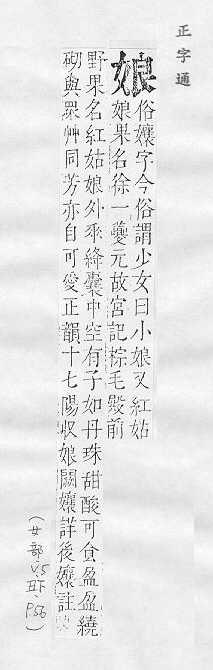 正字通
娘
俗孃字今俗謂少女曰小娘又紅姑
娘果名徐一夔元故宮記棕毛殿前
野果名紅姑娘外乖絳囊中空有子如丹珠甜酸可食盈盈繞
砌與眾艸同芳亦自可愛正韻十七陽收娘闕孃詳後孃註
(女部V.5 丑下 P.56)